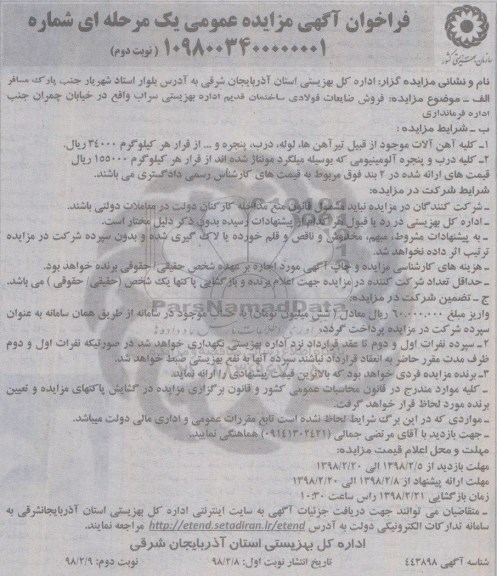 فراخوان آگهی مزایده عمومی یک مرحله ای شماره
۱۰۹۸۰۰۳۴۰۰۰۰۰۰۰۱ ( نوبت دوم)
سازمان بهزیستی کشور
نام و نشانی مزایده گزار: اداره کل بهزیستی استان آذربایجان شرقی به آدرس بلوار استاد شهریار جنب پارک مسافر
الف ـ موضوع مزایده: فروش ضایعات فولادی ساختمان قدیم اداره بهزیستی سراب واقع در خیابان چمران جنب
اداره فرمانداری
ب ـ شرایط مزایده :
۱ـ کلیه آهن آلات موجود از قبیل تیرآهن ها، لوله، درب، پنجره و ... از قرار هر کیلوگرم ۳۴۰۰۰ ریال.
۲ـ کلیه درب و پنجره آلومینیومی که بوسیله میلگرد مونتاژ شده اند از قرار هر کیلوگرم ۱۵۵۰۰۰ ریال
قیمت های ارائه شده در ۲ بند فوق مربوط به قیمت های کارشناس رسمی دادگستری می باشند.
شرایط شرکت در مزایده:
ـ شرکت کنندگان در مزایده نباید مشمول قانون منع مداخله کارکنان دولت در معاملات دولتی باشند.
ـ اداره کل بهزیستی در رد یا قبول هر کدام از پیشنهادات رسیده بدون ذکر دلیل مختار است.
ـ به پیشنهادات مشروط، مبهم، مخدوش و ناقص و قلم خورده یا لاک گیری شده و بدون سپرده شرکت در مزایده
ترتیب اثر داده نخواهد شد.
ـ هزینه های کارشناسی مزایده و چاپ آگهی مورد اجاره بر عهده شخص حقیقی/ حقوقی برنده خواهد بود.
ـ حداقل تعداد شرکت کننده در مزایده جهت اعلام برنده و بازگشایی پاکتها یک شخص (حقیقی/ حقوقی ) می باشد.
ج ـ تضمین شرکت در مزایده:
واریز مبلغ ۶۰.۰۰۰.۰۰۰ ریال معادل ( شش میلیون تومان ) به حساب موجود در سامانه از طریق همان سامانه به عنوان
سپرده شرکت در مزایده پرداخت گردد.
۲ـ سپرده نفرات اول و دوم تا عقد قرارداد نزد اداره بهزیستی نگهداری خواهد شد در صورتیکه نفرات اول و دوم
ظرف مدت مقرر حاضر به انعقاد قرارداد نباشند سپرده آنها به نفع بهزیستی ضبط خواهد شد.
۳ـ برنده مزایده فردی خواهد بود که بالاترین قیمت پیشنهادی را ارائه نماید.
ـ کلیه موارد مندرج در قانون محاسبات عمومی کشور و قانون برگزاری مزایده در گشایش پاکتهای مزایده و تعیین
برنده مورد لحاظ قرار خواهد گرفت.
ـ مواردی که در این برگ شرایط لحاظ نشده است تابع مقررات عمومی و اداری مالی دولت میباشد.
ـ جهت بازدید با آقای مرتضی جمالی (۰۹۱۴۱۳۰۲۴۲۱) هماهنگی نمایید.
مهلت و محل اعلام قیمت مزایده:
مهلت بازدید از ۱۳۹۸/۲/۵ الی ۱۳۹۸/۲/۲۰
مهلت ارائه پیشنهاد از ۱۳۹۸/۲/۸ الی ۱۳۹۸/۲/۲۰
زمان بازگشایی ۱۳۹۸/۲/۲۱ راس ساعت ۱۰:۳۰
ـ متقاضیان می توانند جهت دریافت جزئیات آگهی به سایت اینترنتی اداره کل بهزیستی استان آذربایجانشرقی به
سامانه تدارکات الکترونیکی دولت به آدرس http://etend.setadiran.ir/etend مراجعه نمایند.
اداره کل بهزیستی استان آذربایجان شرقی
شناسه آگهی ۴۴۳۸۹۸ تاریخ انتشار نوبت اول: ۹۸/۲/۸ نوبت دوم: ۹۸/۲/۹
ParsNamadData